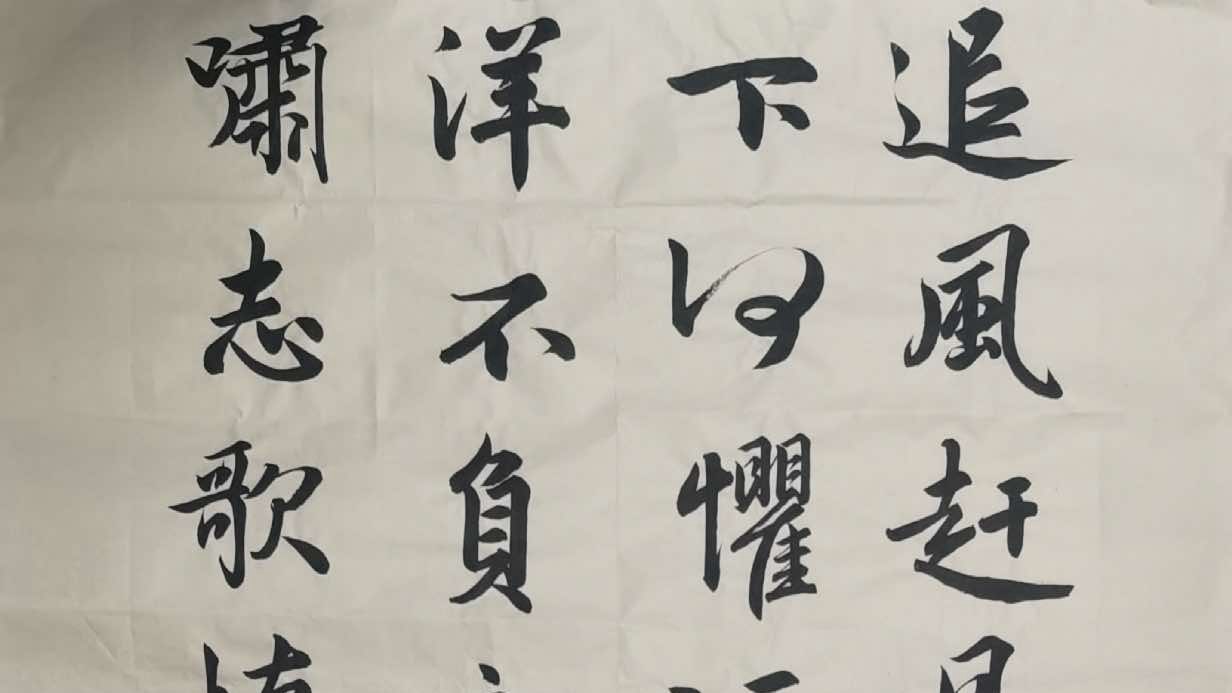 追風赶
下何懼
洋不負
嘯志歌